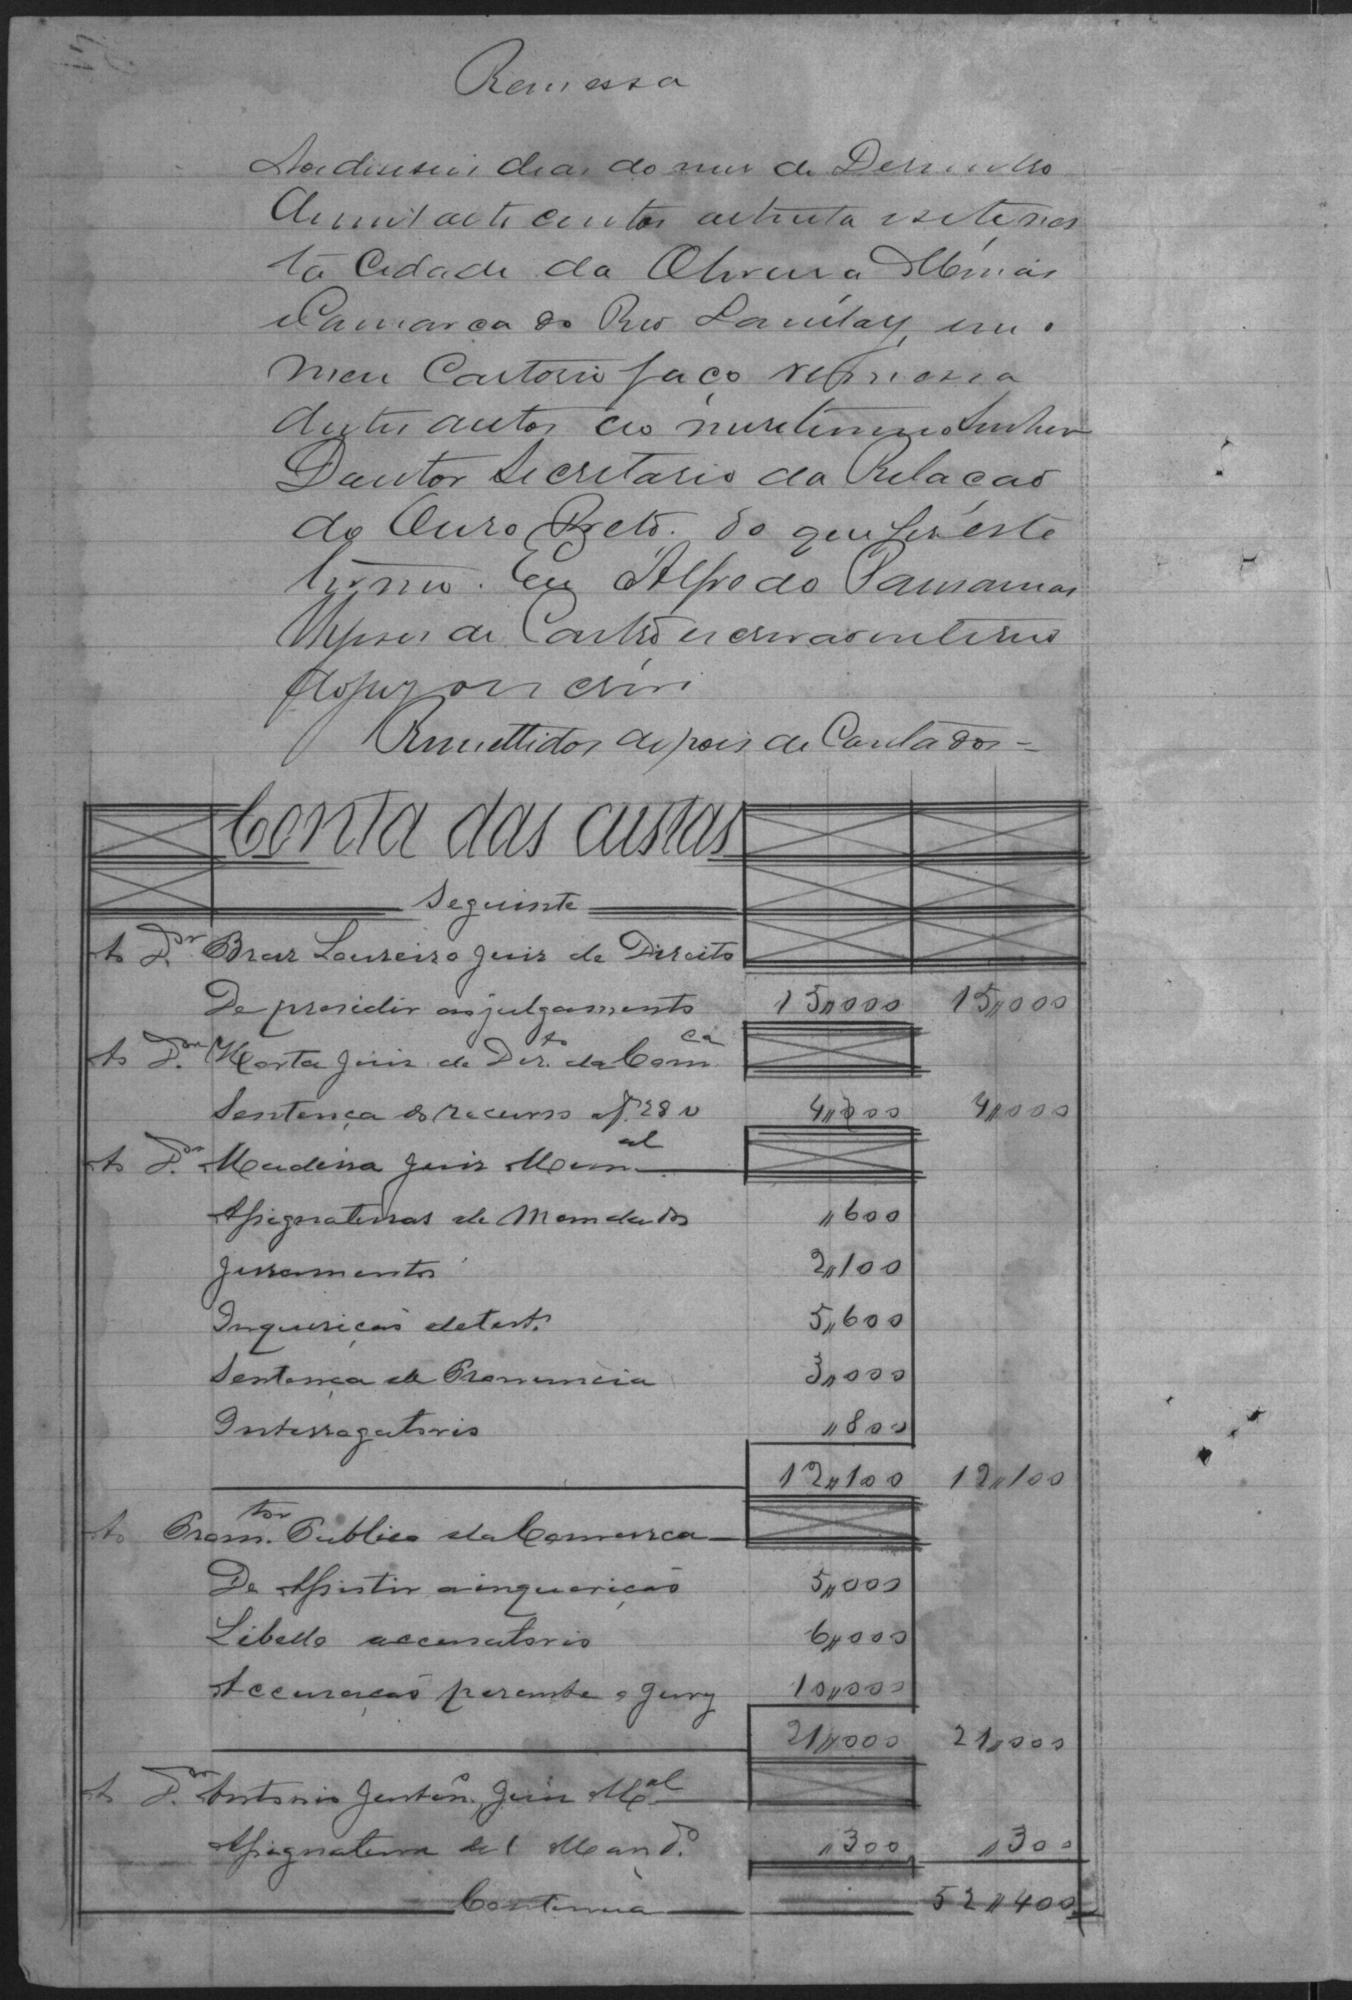 Remessa
Aos dieseseis dias do mes de Desembro
de mil oito centos oitenta e sete nes
ta Cidade da Oliveira Minas
e Comarca do Rio Lambary, em
meu Cartorio faço remessa
destes autos ao meretissimo Senhor
Doutor Secretario da Relação
do Ouro Preto. do que fiz este
termo. Eu Alfredo
de Castro escrivão interino
do jury o escrivi
Remettidos depois de Contados =
Conta das custas
Seguinte
Ao Dr. Braz Loureiro Juiz de Direito
De presidir ao julgamento 15,,000 15,,000
Ao Dr. Horta Juiz de Dir.to da Com.ca
Sentença do recurso af. 28 v 4,,000 4,,000
Ao Dr. Madeira Juiz Mun.al
Assignaturas de Mandados ,,600
Juramentos 2,,100
Inquirição de test. 5,,600
Sentença de Pronuncia 3,,000
Interrogatorio ,,800
12,,100 12,,100
Ao Prom.tor Publico da Comarca
De Assistir a inquerição 5,,000
Libello accusatorio 6,,000
Accusação perante o Jury 10,,000
21,,000 21,,000
Ao Dr. Antonio Juiz M.al
Assignatura de 1 Mand.o ,,300 ,,300
Continúa 52,,400